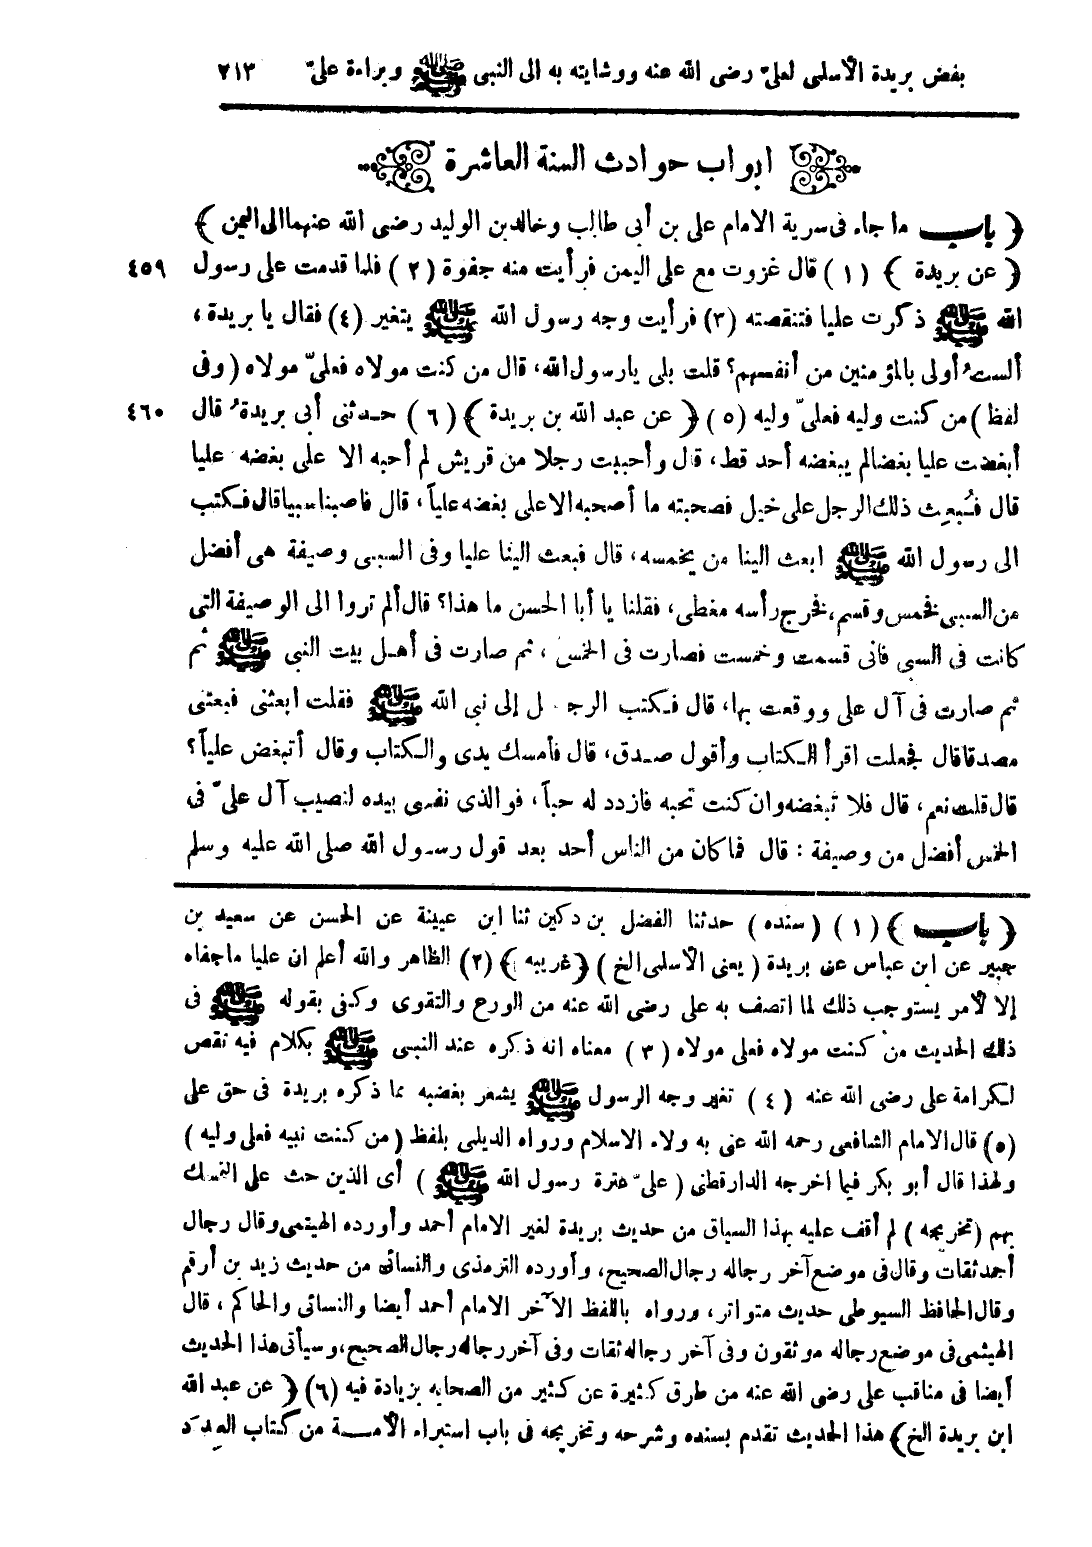 بغض بريدة الأسلمى لعلىّ رضى الله عنه ووشايته به الى النبى ﷺ وبراءة علىّ ٢١٣
ابواب حوادث السنة العاشرة
﴿ باب ما جاء فى سرية الامام على بن أبى طالب وخالد بن الوليد رضى الله عنهما الى اليمن ﴾
﴿ عن بريدة ﴾ (١) قال غزوت مع على اليمن فرأيت منه جفوة (٢) فلما قدمت على رسول ٤٥٩
الله ﷺ ذكرت عليا فتنقصته (٣) فرأيت وجه رسول الله ﷺ يتغير (٤) فقال يا بريدة ،
ألست أولى بالمؤمنين من أنفسهم؟ قلت بلى يارسول الله، قال من كنت مولاه فعلىّ مولاه (وفى
لفظ) من كنت وليه فعلىّ وليه (٥) ﴿ عن عبد الله بن بريدة ﴾ (٦) حدثنى أبى بريدة قال ٤٦٠
أبغضت عليا بغضا لم يبغضه أحد قط، قال وأحببت رجلا من قريش لم أحبه الا على بغضه عليا
قال فبُعِث ذلك الرجل على خيل فصحبته ما أصحبه الا على بغضه علياً ، قال فاصبنا سبيا قال فكتب
الى رسول الله ﷺ ابعث الينا من يخمسه، قال فبعث الينا عليا وفى السبى وصيفة هى أفضل
من السبى فخمس وقسم، فخرج رأسه مغطى، فقلنا يا أبا الحسن ما هذا؟ قال ألم تروا الى الوصيفة التى
كانت فى السبى فانى قسمت وخمست فصارت فى الخمس ، ثم صارت فى أهل بيت النبى ﷺ ثم
ثم صارت فى آل على ووقعت بها، قال فكتب الرجل إلى نبى الله ﷺ فقلت ابعثنى فبعثنى
مصدقا قال فجعلت اقرأ الكتاب وأقول صدق، قال فأمسك يدى والكتاب وقال أتبغض علياً؟
قال قلت نعم، قال فلا تبغضه وان كنت تحبه فازدد له حباً، فو الذى نفسى بيده لنصيب آل علىّ فى
الخمس أفضل من وصيفة : قال فما كان من الناس أحد بعد قول رسول الله صلى الله عليه وسلم
﴿ باب ﴾ (١) (سنده) حدثنا الفضل بن دكين ثنا ابن عيينة عن الحسن عن سعيد بن
جبير عن ابن عباس عن بريدة (يعنى الأسلمى الخ) ﴿غريبه﴾ (٢) الظاهر والله أعلم ان عليا ما جفاه
إلا لأمر يستوجب ذلك لما اتصف به على رضى الله عنه من الورع والتقوى وكفى بقوله ﷺ فى
ذلك الحديث من كنت مولاه فعلى مولاه (٣) معناه انه ذكره عند النبى ﷺ بكلام فيه نقص
لكرامة على رضى الله عنه (٤) تغير وجه الرسول ﷺ يشعر بغضبه مما ذكره بريدة فى حق على
(٥) قال الامام الشافعى رحمه الله عنى به ولاء الاسلام ورواه الديلمى بلفظ (من كنت نبيه فعلى وليه)
ولهذا قال أبو بكر فيما اخرجه الدارقطنى (علىّ عترة رسول الله ﷺ) أى الذين حث على التمسك
بهم (تخريجه) لم أقف عليه بهذا السياق من حديث بريدة لغير الامام أحمد وأورده الهيثمى وقال رجال
أحمد ثقات وقال فى موضع آخر رجاله رجال الصحيح، وأورده الترمذى والنسائى من حديث زيد بن أرقم
وقال الحافظ السيوطى حديث متواتر، ورواه باللفظ الآخر الامام أحمد أيضا والنسائى والحاكم ، قال
الهيثمى فى موضع رجاله موثقون وفى آخر رجاله ثقات وفى آخر رجاله رجال الصحيح، وسيأتى هذا الحديث
أيضا فى مناقب على رضى الله عنه من طرق كثيرة عن كثير من الصحابه بزيادة فيه (٦) ﴿ عن عبد الله
ابن بريدة الخ﴾ هذا الحديث تقدم بسنده وشرحه وتخريجه فى باب استبراء الأمة من كتاب العدد